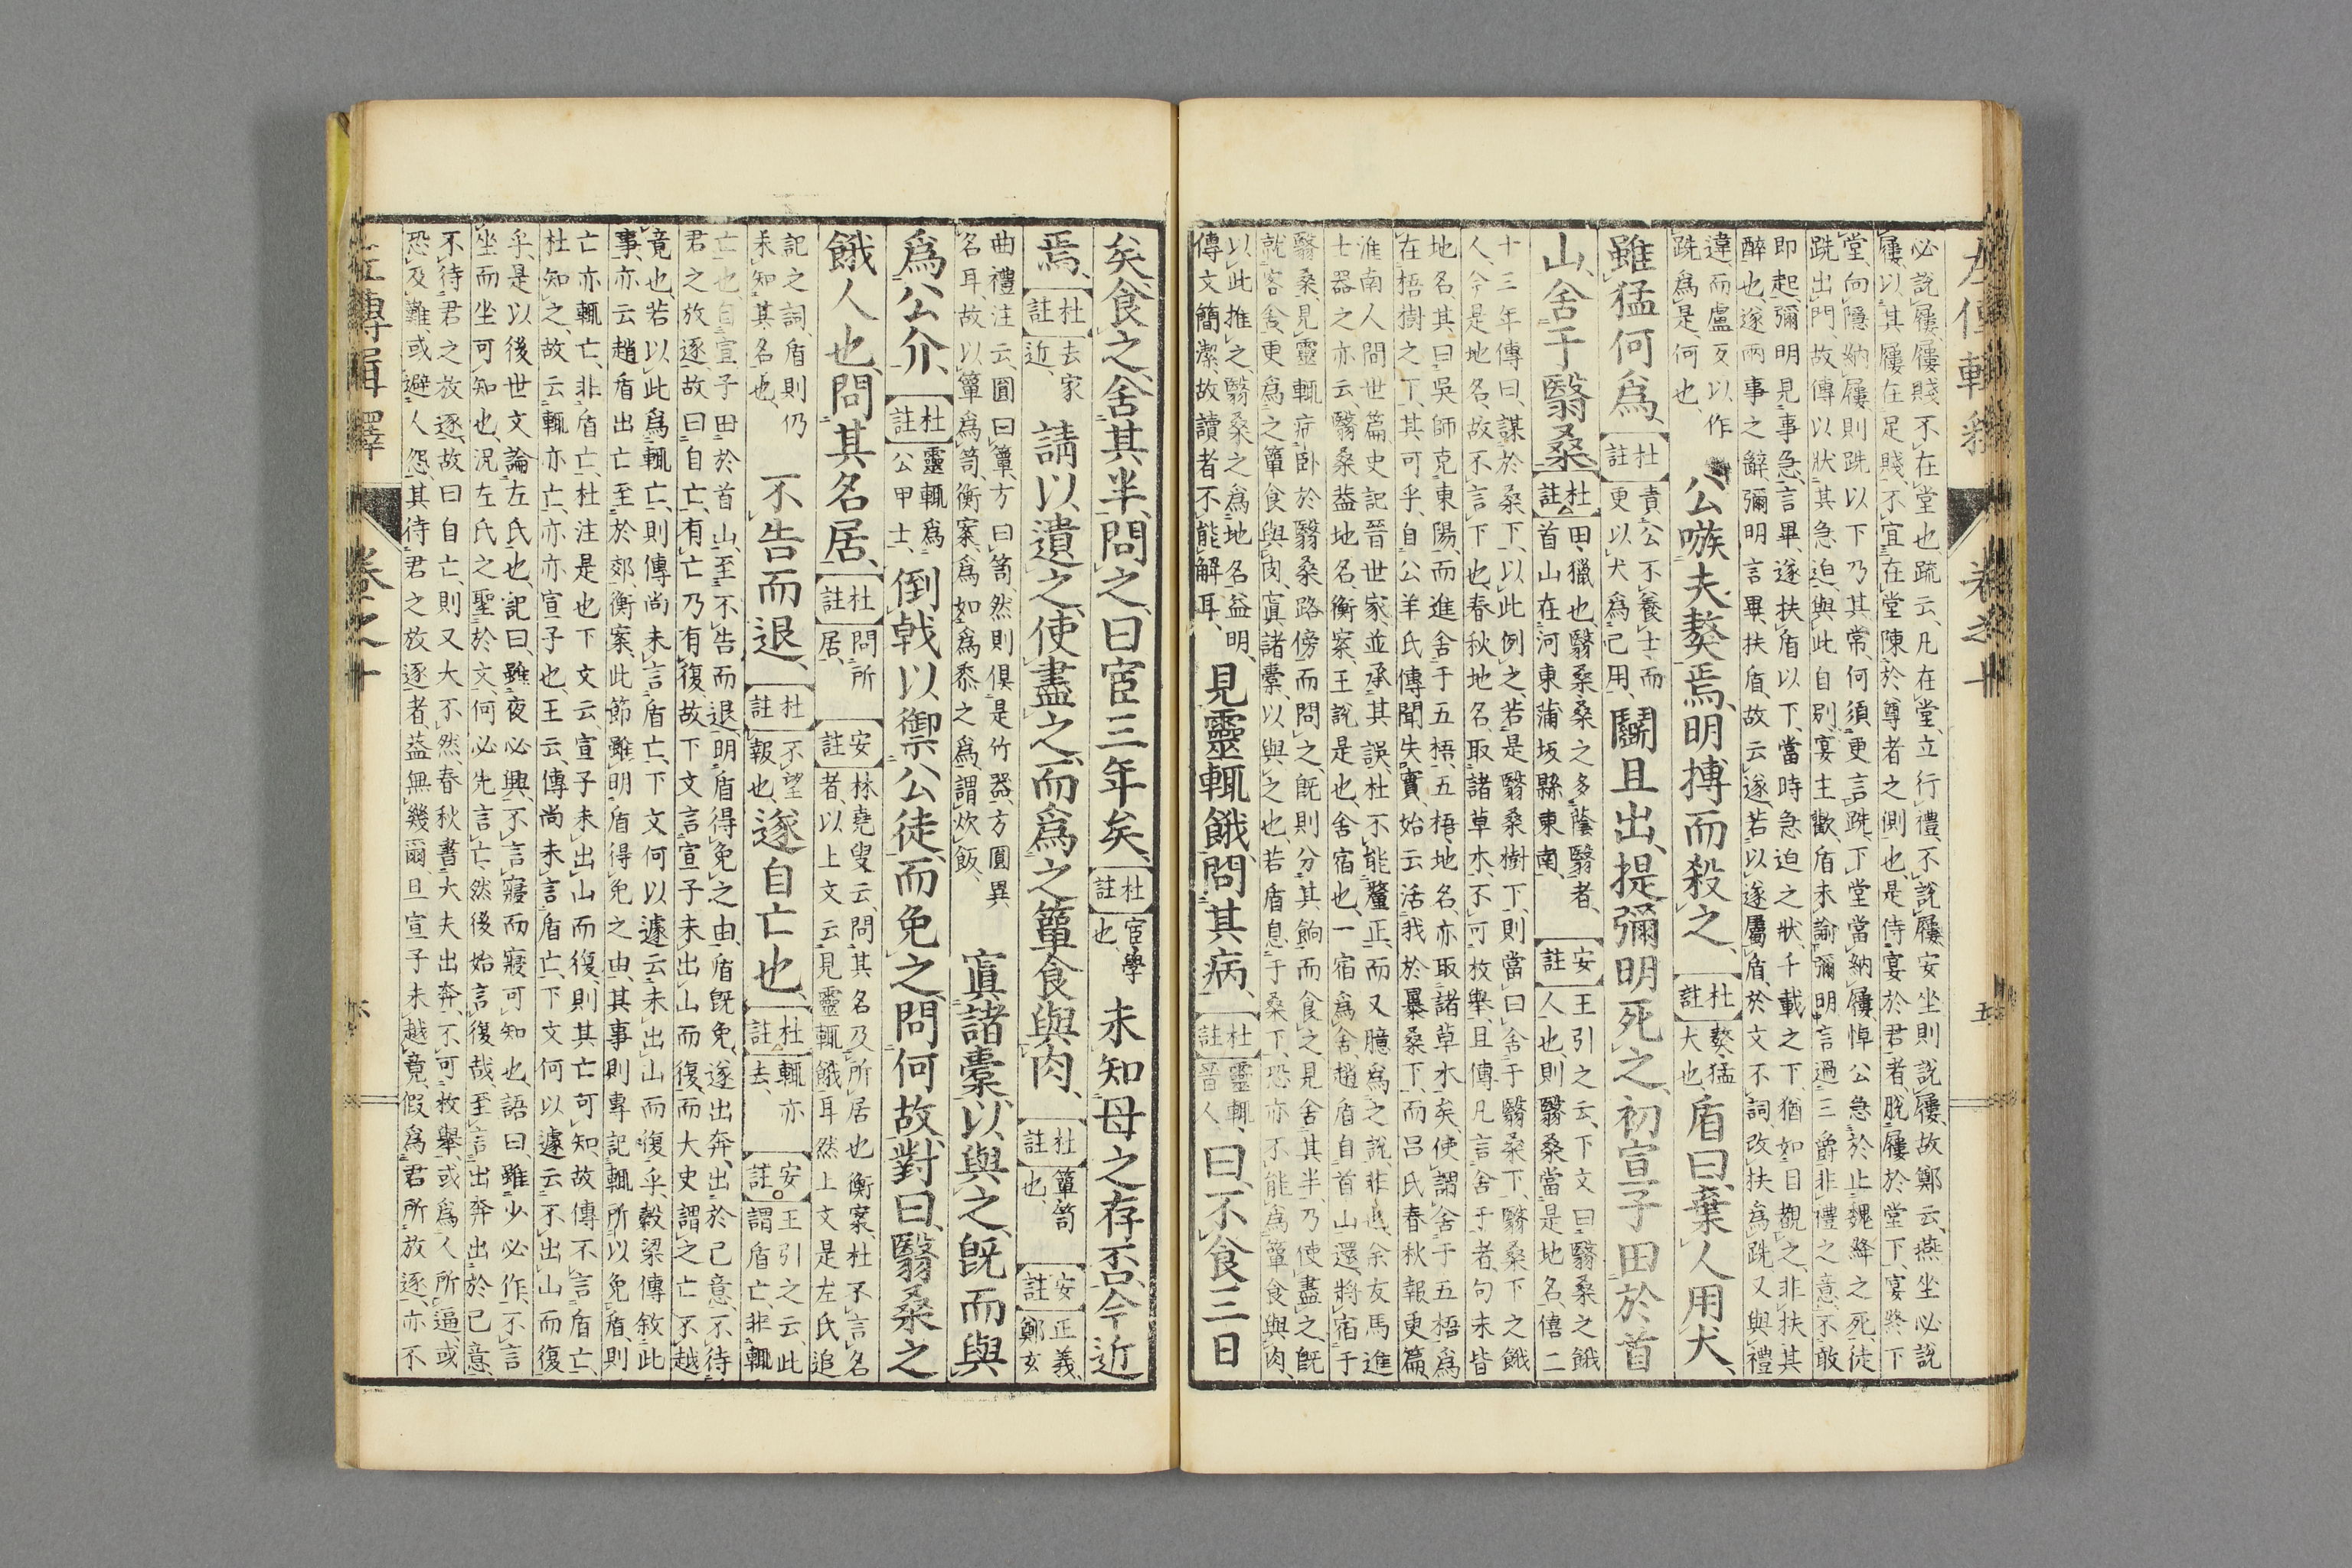 左傳輯釋 卷之十 五
必說屨、屨賤、不在堂也、疏云、凡在堂立行禮、不說屨、安坐則說屨、故鄭云、燕坐必說
屨、以其屨在足賤、不宜在堂陳於尊者之側也、是侍宴於君者、脫屨於堂下、宴終下
堂、向隱納屨、則跣以下、乃其常、何須更言跣、下堂當納屨、悼公急於止魏絳之死、徒
跣出門、故傳以狀其急迫、與此自別、宴主歡、盾未諭彌明言過三爵非禮之意、不敢
即起、彌明見事急、言畢、遂扶盾以下、當時急迫之狀、千載之下、猶如目覩之、非扶其
醉也、遂兩事之辭、彌明言畢扶盾、故云遂、若以遂屬盾、於文不詞、改扶爲跣、又與禮
違、而盧反以作
跣爲是、何也、
公嗾夫獒焉、明搏而殺之、
杜註
獒、猛
犬也、
盾曰、棄人用犬、
雖猛何爲、
杜註
責公不養士、而
更以犬爲己用、
鬭且出、提彌明死之、初宣子田於首
山、舍于翳桑、
杜註
田、獵也、翳桑、桑之多蔭翳者、
首山在河東蒲坂縣東南、
安註
王引之云、下文曰翳桑之餓
人也、則翳桑當是地名、僖二
十三年傳曰、謀於桑下、以此例之、若是翳桑樹下、則當曰舍于翳桑下、翳桑下之餓
人、今是地名、故不言下也、春秋地名、取諸草木、不可枚舉、且傳凡言舍于者、句末皆
地名、其曰吳師克東陽、而進舍于五梧、五梧、地名、亦取諸草木矣、使謂舍于五梧爲
在梧樹之下、其可乎、自公羊氏傳聞失實、始云活我於暴桑下、而呂氏春秋報更篇、
淮南人間世篇、史記晉世家、並承其誤、杜不能釐正、而又臆爲之說、非也、余友馬進
士器之亦云、翳桑葢地名、衡案、王說是也、舍、宿也、一宿爲舍、趙盾自首山還、將宿于
翳桑、見靈輒病臥於翳桑路傍、而問之、旣則分其餉而食之、見舍其半、乃使盡之、旣
就客舍、更爲之簞食與肉、寘諸橐、以與之也、若盾息于桑下、恐亦不能爲簞食與肉、
以此推之、翳桑之爲地名益明、
傳文簡潔、故讀者不能解耳、
見靈輒餓問其病、
杜註
靈輒、
晉人
曰、不食三日
矣、食之、舍其半、問之、曰宦三年矣、
杜註
宦、學
也、
未知母之存否、今近
焉、
杜註
去家
近、
請以遺之、使盡之、而爲之簞食與肉、
杜註
簞笥
也、
安註
正義、
鄭玄
曲禮注云、圓曰簞、方曰笥、然則俱是竹器、方圓異
名耳、故以簞爲笥、衡案、爲如爲黍之爲、謂炊飯、
寘諸橐、以與之、旣而與
爲公介、
杜註
靈輒爲
公甲士、
倒戟以禦公徒、而免之、問何故、對曰、翳桑之
餓人也、問其名居、
杜註
問所
居、
安註
林堯叟云、問其名及所居也、衡案、杜不言名
者、以上文云見靈輒餓耳、然上文是左氏追
記之詞、盾則仍
未知其名也、
不告而退、
杜註
不望
報也、
遂自亡也、
杜註
輒亦
去、
安註
王引之云、此
謂盾亡、非輒
亡也、自宣子田於首山、至不告而退、明盾得免之由、盾旣免、遂出奔、出於己意、不待
君之放逐、故曰自亡、有亡乃有復、故下文言宣子未出山而復、而大史謂之亡不越
竟也、若以此爲輒亡、則傳尚未言盾亡、下文何以遽云未出山而復乎、穀梁傳敘此
事、亦云趙盾出亡、至於郊、衡案、此節雖明盾得免之由、其事則專記輒所以免盾、則
亡亦輒亡、非盾亡、杜注是也、下文云宣子未出山而復、則其亡可知、故傳不言盾亡、
杜知之、故云輒亦亡、亦亦宣子也、王云、傳尚未言盾亡、下文何以遽云不出山而復
乎、是以後世文論左氏也、記曰、雖夜必興、不言寢而寢可知也、語曰、雖少必作、不言
坐而坐可知也、況左氏之聖於文、何必先言亡、然後始言復哉、至言出奔出於己意、
不待君之放逐、故曰自亡、則又大不然、春秋書大夫出奔、不可枚舉、或爲人所逼、或
恐及難、或避人怨、其待君之放逐者、葢無幾爾、且宣子未越竟、假爲君所放逐、亦不
左傳輯釋 卷之十